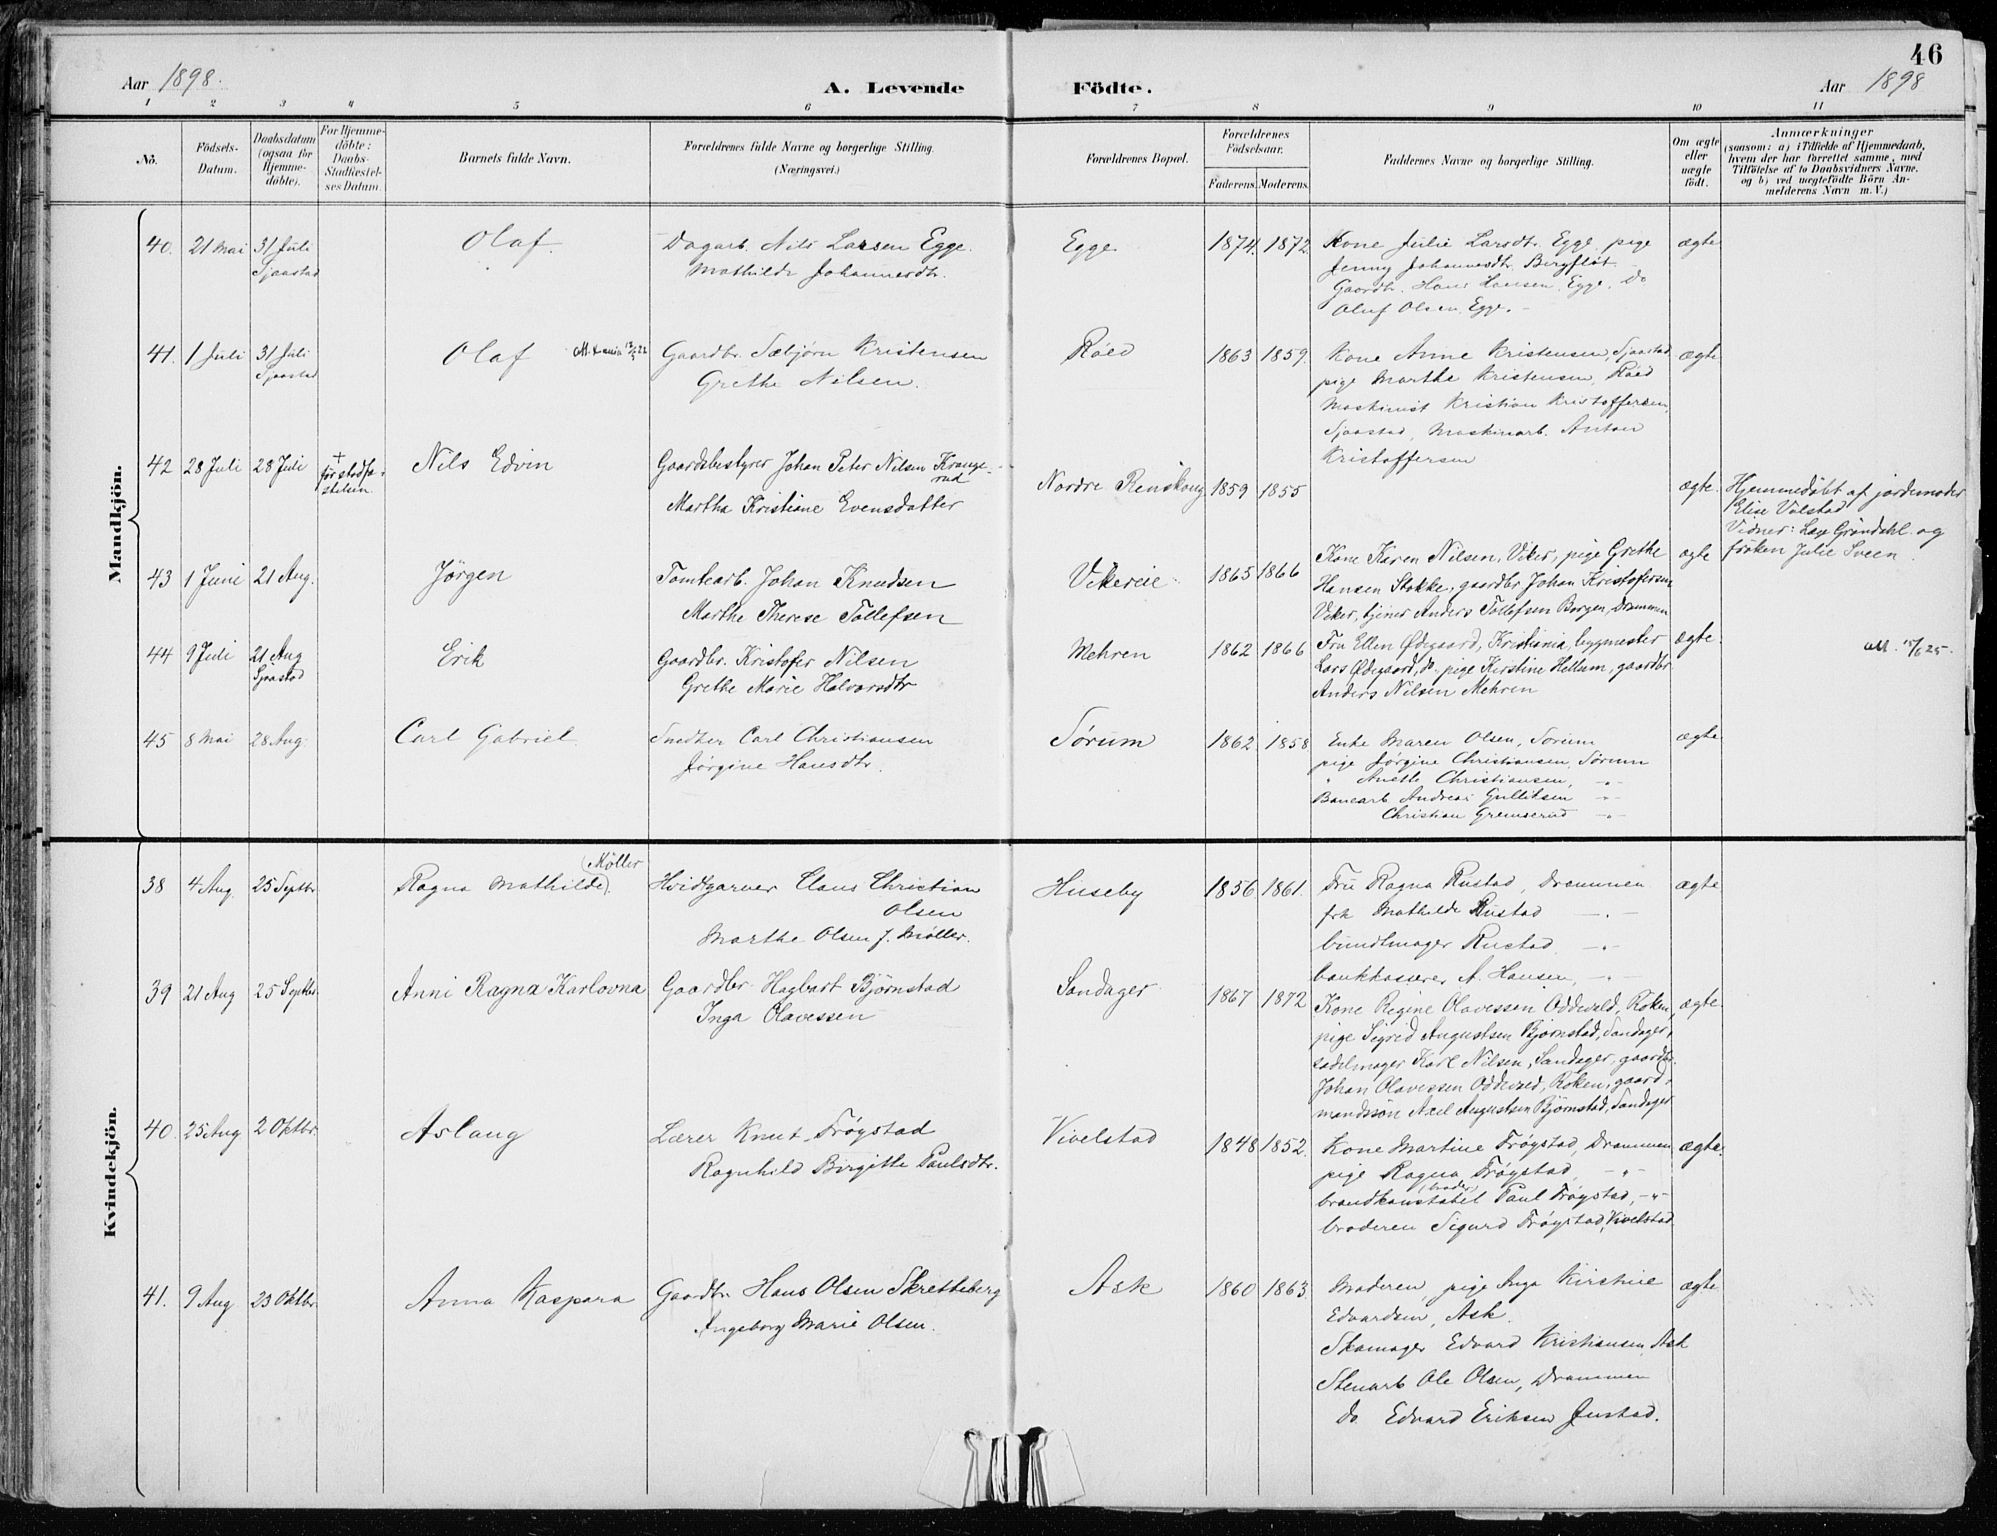 46
Aar 1898.
A. Levende Födte.
Aar 1898
1 2 3 4 5 6 7 8 9 10 11
No.
Födsels-Datum.
Daabsdatum (ogsaa for Hjemme-döbte).
For Hjemme-döbte: Daabs-Stadfæstel-ses Datum.
Barnets fulde Navn.
Forældrenes fulde Navne og borgerlige Stilling. (Næringsvei.)
Forældrenes Bopæl.
Forældrenes Födselsaar.
Faderens. Moderens.
Faddernes Navne og borgerlige Stilling.
Om ægte eller uægte födt.
Anmærkninger
(saasom: a) i Tilfælde af Hjemmedaab, hvem der har forrettet samme, med Tilföielse af to Daabsvidners Navne. og b) ved uægtefödte Börn An-melderens Navn m. V.)
Mandkjön.
40. 21 Mai 31 Juli Sjaastad Olaf. Dagarb. Nils Larsen Egge. Egge 1874. 1872. Kone Julie Larsdt. Egge, pige ægte
Mathilde Johannesdtr. Jenny Johannesdtr. Bergfløt.
Gaardbr. Hans Larsen Egge. Do
Oluf Olsen Egge.
41. 1 Juli 31 Juli Sjaastad Olaf Gaardbr. Sæbjørn Kristensen Röed 1863 1859. Kone Anne Kristensen, Sjaastad ægte
Grethe Nilsen. pige Marthe Kristensen, Röed
Maskinist Kristian Kristoffersen,
Sjaastad, Maskinarb. Anton
Kristoffersen
42 28 Juli 28 Juli + før stadfæ-stelsen Nils Edvin Gaardsbestyrer Johan Peter Nilsen Krange-rud
Martha Kristiane Evensdatter Nordre Renskoug 1859 1855 ægte. Hjemmedøbt af jordemoder
Elise Valstad
Vidner: Grøndahl og
frøken Julie Sveen.
43 1 Juni 21 Aug. Jørgen Tomtearb. Johan Knudsen Vekereie 1865 1866 Kone Karen Nilsen, Viker, pige Grethe ægte
Marthe Therese Tollefsen Hansen Stokke, gaardbr Johan Kristofersen
Viker, tjener Anders Tollefsen Borgen, Drammen
44 9 Juli 21 Aug Sjaastad Erik Gaardbr. Kristofer Nilsen Mehren 1862 1866 Fru Ellen Ødegaard, Kristiania, bygmester ægte. att. 15/6 25.
Grethe Marie Halvorsdtr Lars Ødegaard, do. pige Kirstine Hellum, gaardbr
Anders Nilsen Mehren
45 8 Mai 28 Aug. Carl Gabriel Snedker Carl Christiansen Sørum 1862 1858 Enke Maren Olsen, Sørum ægte
Jørgine Hansdtr. pige Jørgine Christiansen, Sørum
" Anette Christiansen, -"-
Banearb Andreas Gulliksen -"-
Christian Gremserud -"-
Kvindekjön.
38 4 Aug. 25 Septbr. Ragna Mathilde (Möller) Hvidtgarver Claus Christian Huseby 1856 1861. Fru Ragna Rustad, Drammen ægte
Olsen frk Mathilde Rustad -"-
Marthe Olsen f. Møller. bundtmager Rustad -"-
bankkasserer A. Hansen, -"-
39 21 Aug 25 Septbr. Anni Ragna Karlovna Gaardbr. Hagbart Bjørnstad Sandager 1867 1872 Kone Regine Olavessen Oddevald, Røken, ægte
Inga Olavessen pige Sigrid Augustsen Bjørnstad, Sandager,
sadelmager Karl Nilsen, Sandager, gaardbr.
Johan Olavessen Oddevald, Røken, gaard-
mandssøn Axel Augustsen Bjørnstad, Sandager
40. 25 Aug 2 Oktbr. Aslaug Lærer Knut Frøystad Vivelstad 1848 1852. Kone Martine Frøystad, Drammen ægte.
Ragnhild Birgitte Paulsdtr. pige Ragna Frøystad, -"-
brandkonstabel Paul Frøystad, -"-
broderen Sigurd Frøystad, Vivelstad
41. 9 Aug 23 Oktbr. Anna Kaspara Gaardbr. Hans Olsen Skretteberg Ask 1860 1863 Moderen, pige Inga Kirstine ægte
Ingeborg Marie Olsen. Edvardsen, Ask.
Skomager Edvard Kristiansen, Ask
Stenarb Ole Olsen, Drammen
Do. Edvard Eriksen Justad.